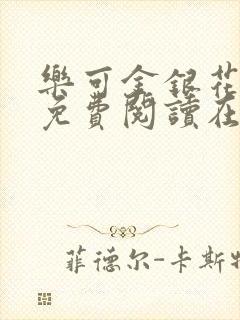 樂可金銀花
免費閱讀在
菲德尔-卡斯特